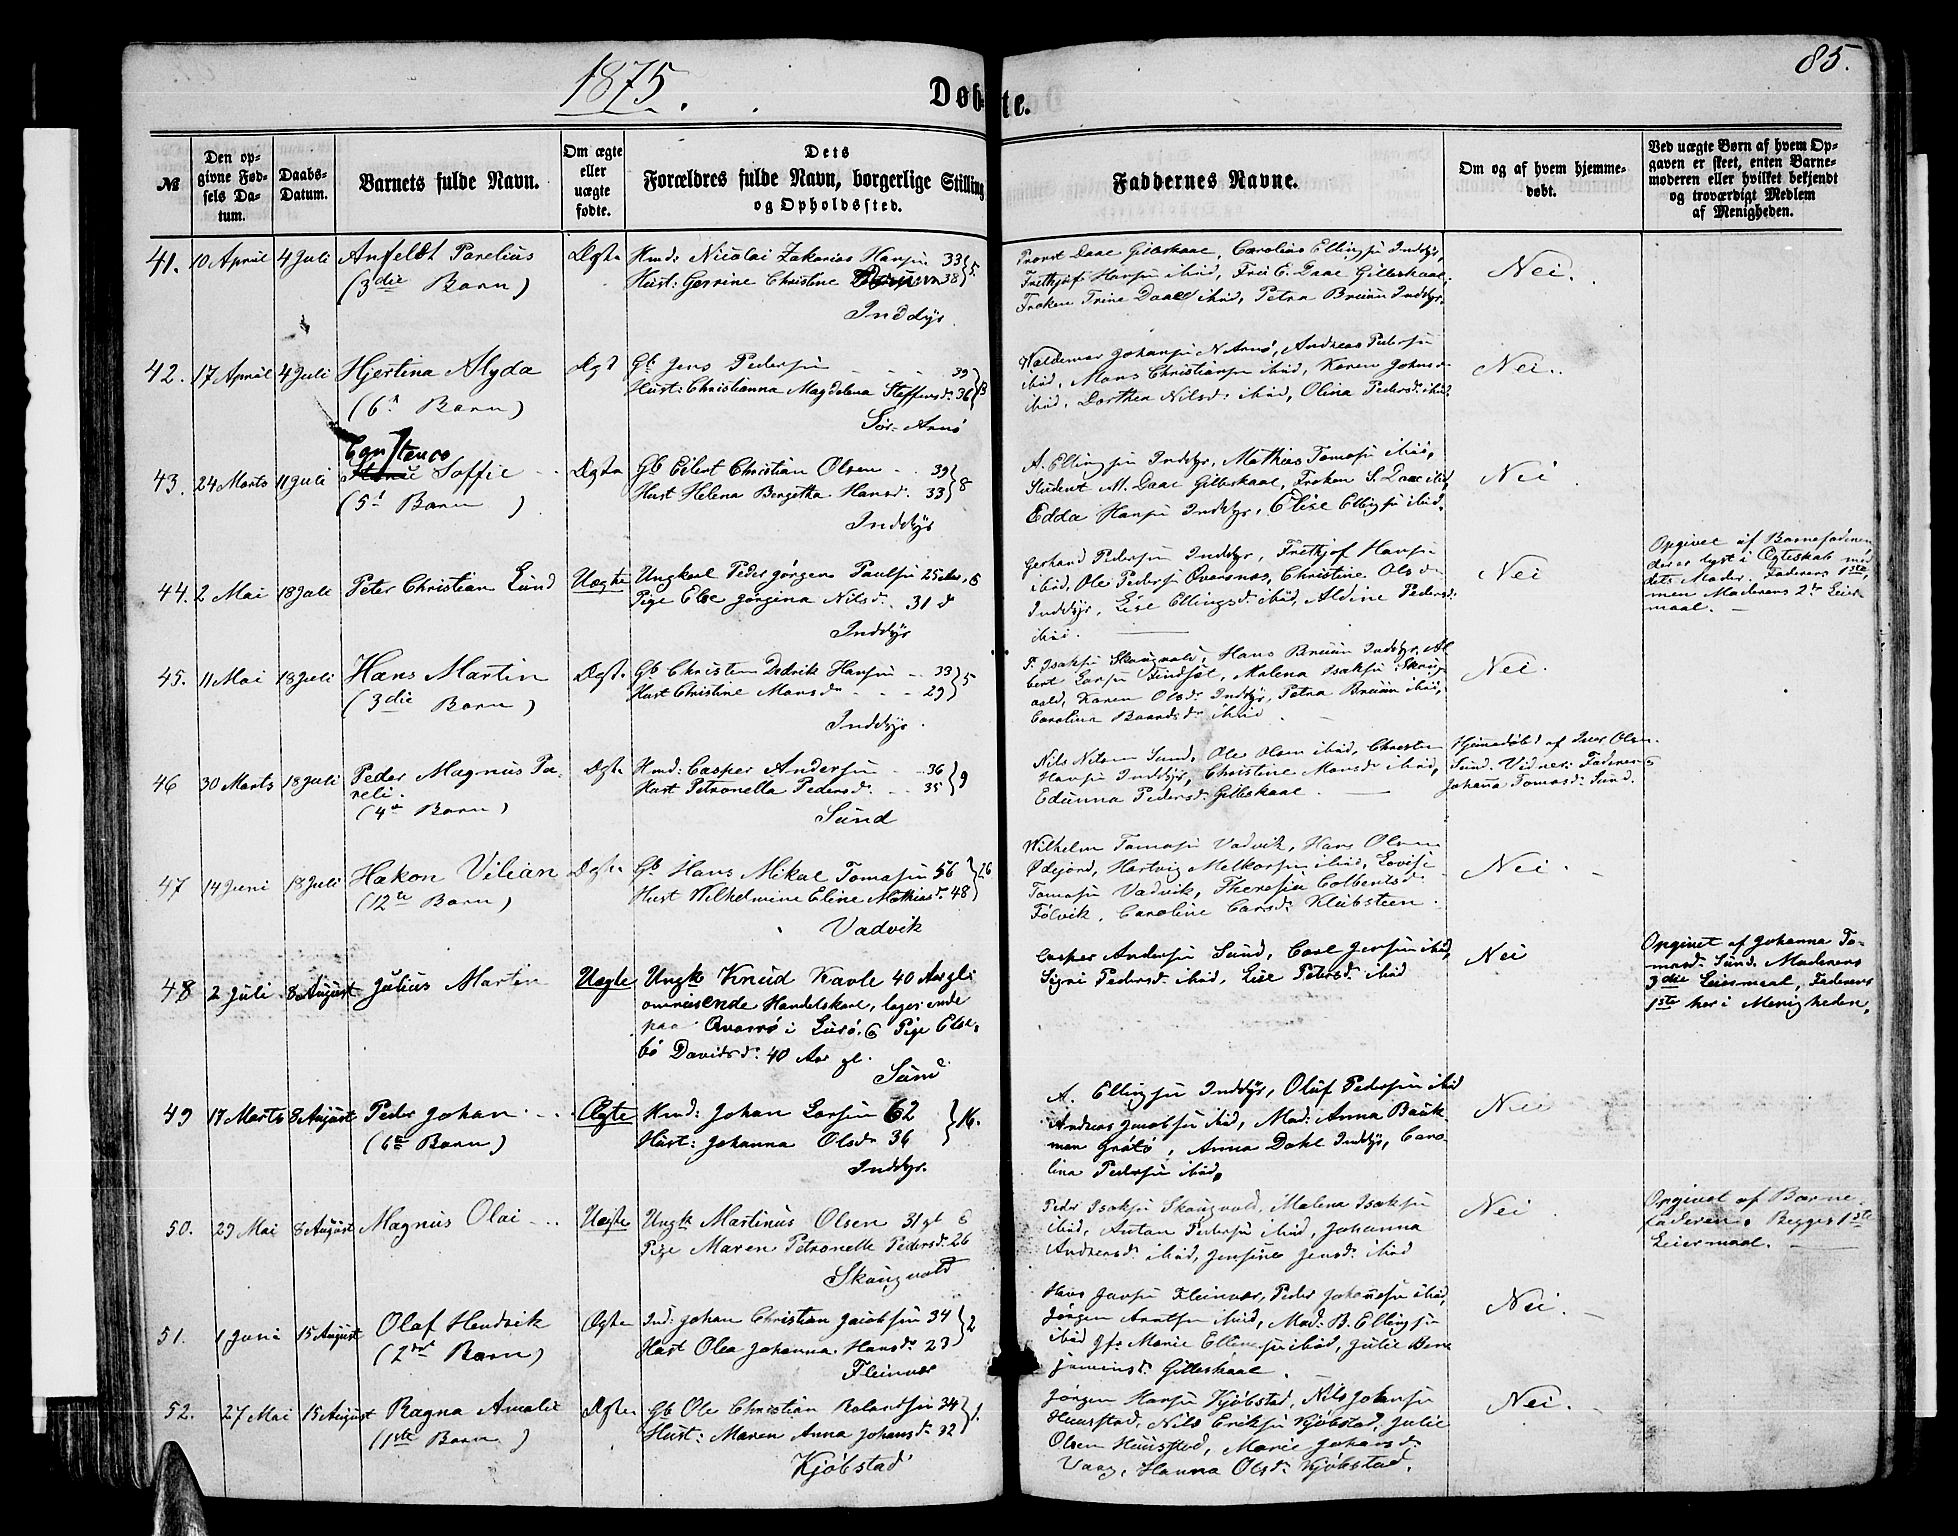 1875.
85.
Døbte.
№
Den opgivne Fødsels Datum.
Daabs-Datum.
Barnets fulde Navn.
Om ægte eller uægte fødte.
Dets Forældres fulde Navn, borgerlige Stilling og Opholdssted.
Faddernes Navne.
Om og af hvem hjemmedøbt.
Ved uægte Børn af hvem Opgaven er skeet, enten Barnemoderen eller hvilket bekjendt og troværdigt Medlem af Menigheden.
41. 10 April 4 Juli Anfeldt Parelius
(3die Barn)
Ægte
Kmd: Nicolai Zakarias Hansen 33
Hust: Gerrine Christine 38 } 5
Inddyr.
Provst Daae Gilleskaal, Carolius Ellingsen Inddyr,
Frethjof Hansen ibid, Fru C. Daae Gilleskaal,
Frøken Trine Daae ibid, Petra Bruun Inddyr.
Nei.
42. 17 April 4 Juli Hjertina Alyda
(6te Barn)
Ægt
Gb. Jens Pedersen 39
Hust: Christianna Magdelena Steffensd. 36 } 13
Sør-Arnø
Valdemar Johansen N. Arnø, Andreas Pedersen
ibid, Mons Christiansen ibid, Karen Johnsd.
ibid, Dorthea Nilsd: ibid, Olina Pedersd. ibid.
Nei.
43. 24 Marts 11 Juli Soffie
(5te Barn)
Ægte
Gb Eilert Christian Olsen 39
Hust Helena Bergetha Hansd. 33 } 8
Inddyr
A. Ellingsen Inddyr, Mathias Tomasen ibid,
Student M. Daae Gilleskaal, Frøken S. Daae ibid,
Edda Hansen Inddyr, Elise Ellingsen ibid.
Nei
44. 2 Mai 18 Juli Peter Christian Lund
Uægte
Ungkarl Peder Jørgen Paulsen 25 Aar, &
Pige Else Jørgina Nilsd. 31 d
Inddyr
Gerhard Pedersen Inddyr, Frethjof Hansen
ibid, Ole Pedersen Øvarsnæs, Christine Olsd.
Inddyr, Lise Ellingsd. ibid, Aldine Pedersd.
ibid.
Nei
Opgivet af Barnefaderen
der er lyst i Ægteskab med
dets Moder. Faderens 1ste,
men Moderens 2det Leier-
maal.
45. 11 Mai 18 Juli Hans Martin
(3die Barn)
Ægte
Gb Christen Dedrik Hansen 33
Hust Christine Monsd. 29 } 5
Inddyr.
P. Isaksen Skaugvold, Hans Bruun Inddyr, Al-
bert Larsen Findset, Malena Isaksen Skaug-
vold, Karen Olsd. Inddyr, Petra Bruun ibid,
Carolina Baardsd. ibid.
Nei.
46 30 Marts 18 Juli Peder Magnus Pa-
reli.
(4de Barn)
Ægte
Kmd: Casper Andersen 36
Hust Petronella Pedersd. 35 } 9
Sund
Nils Nilsen Sund, Ole Olsen ibid, Christen
Hansen Inddyr, Christine Monsd. ibid,
Edianna Pedersd. Gilleskaal.
Hjemmedøbt af Iver Olsen
Sund. Vidner: Faderen &
Johanna Tomasd. Sund.
47 14 Juni 18 Juli Hakon Vilian
(12te Barn)
Ægte
Gb Hans Mikal Tomasen 56
Hust Wilhelmine Eline Mathiasd. 48 } 26
Vadvik
Wilhelm Tomasen Vadvik, Hans Olsen
Ødejord, Hartvig Melkorsen ibid, Lovise
Tomasen Vadvik, Theresia Colbentsd.
Følvik, Caroline Carsd. Klubsteen.
Nei.
48 2 Juli 8 August Julius Martin
Uægte
Ungk. Knud Kavle 40 Aar gl.
omreisende Handelskarl, logerende
paa Qvarø i Lurø, & Pige Else-
bó Davidsd. 40 Aar gl.
Sund
Casper Andersen Sund, Carl Jensen ibid,
Signi Pedersd. ibid, Lise Petersd. ibid
Nei
Opgivet af Johanna To-
masd. Sund. Moderens
3die Leiermaal, Faderens
1ste her i Menigheden.
49 17 Marts 8 August Peder Johan
(6te Barn)
Ægte
Kmd: Johan Larsen 62
Hust: Johanna Olsd. 36 } 16.
Inddyr.
A. Ellingsen Inddyr, Oluf Pedersen ibid
Andreas Jacobsen ibid, Mad: Anna Bauk-
man Grøtø, Anna Dahl Inddyr, Caro-
lina Pedersen ibid.
Nei
50. 29 Mai 8 August Magnus Olai
Uægte
Ungk. Martinus Olsen 31 gl &
Pige Maren Petronelle Pedersd. 26
Skaugvold
Peder Isaksen Skaugvold, Malena Isaksen
ibid, Anton Pedersen ibid, Johanna
Andreasd. ibid, Jensine Jensd. ibid
Nei
Opgivet af Barne-
faderen. Begges 1ste
Leiermaal.
51. 1 Juni 15 August Olaf Hendrik
(2det Barn)
Ægte
Ind. Johan Christian Jacobsen 34
Hust Olea Johanna Hansd. 23 } 2
Fleinvær
Hans Jansen Fleinvær, Peder Johannesen ibid,
Jørgen Arntsen ibid, Mad. B. Ellingsen
ibid, Jfr. Marie Ellingsen ibid, Julie Ben-
jaminsd. Gilleskaal.
Nei.
52. 27 Mai 15 August Ragna Amalie
(1ste Barn)
Ægte
Gb Ole Christian Rolandsen 34
Hust: Maren Anna Johansd. 32 } 1.
Kjøbstad
Jørgen Hansen Kjøbstad, Nils Johansen
Huustad, Nils Eriksen Kjøbstad, Julie
Olsen Huustad, Marie Johansd.
Vaag, Hanna Olsd. Kjøbstad.
Nei.